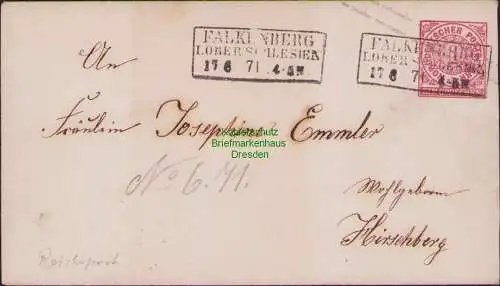 FALKENBERG
I.OBER SCHLESIEN
17 6 71 4-5N
FALKENBERG
I.OBER SCHLESIEN
17 6 71 4-5N
An
Fräulein Josephine Emmler
Briefmarkenhaus
Dresden
No 6. 71.
Wohlgeboren
Hirschberg
Reichspost